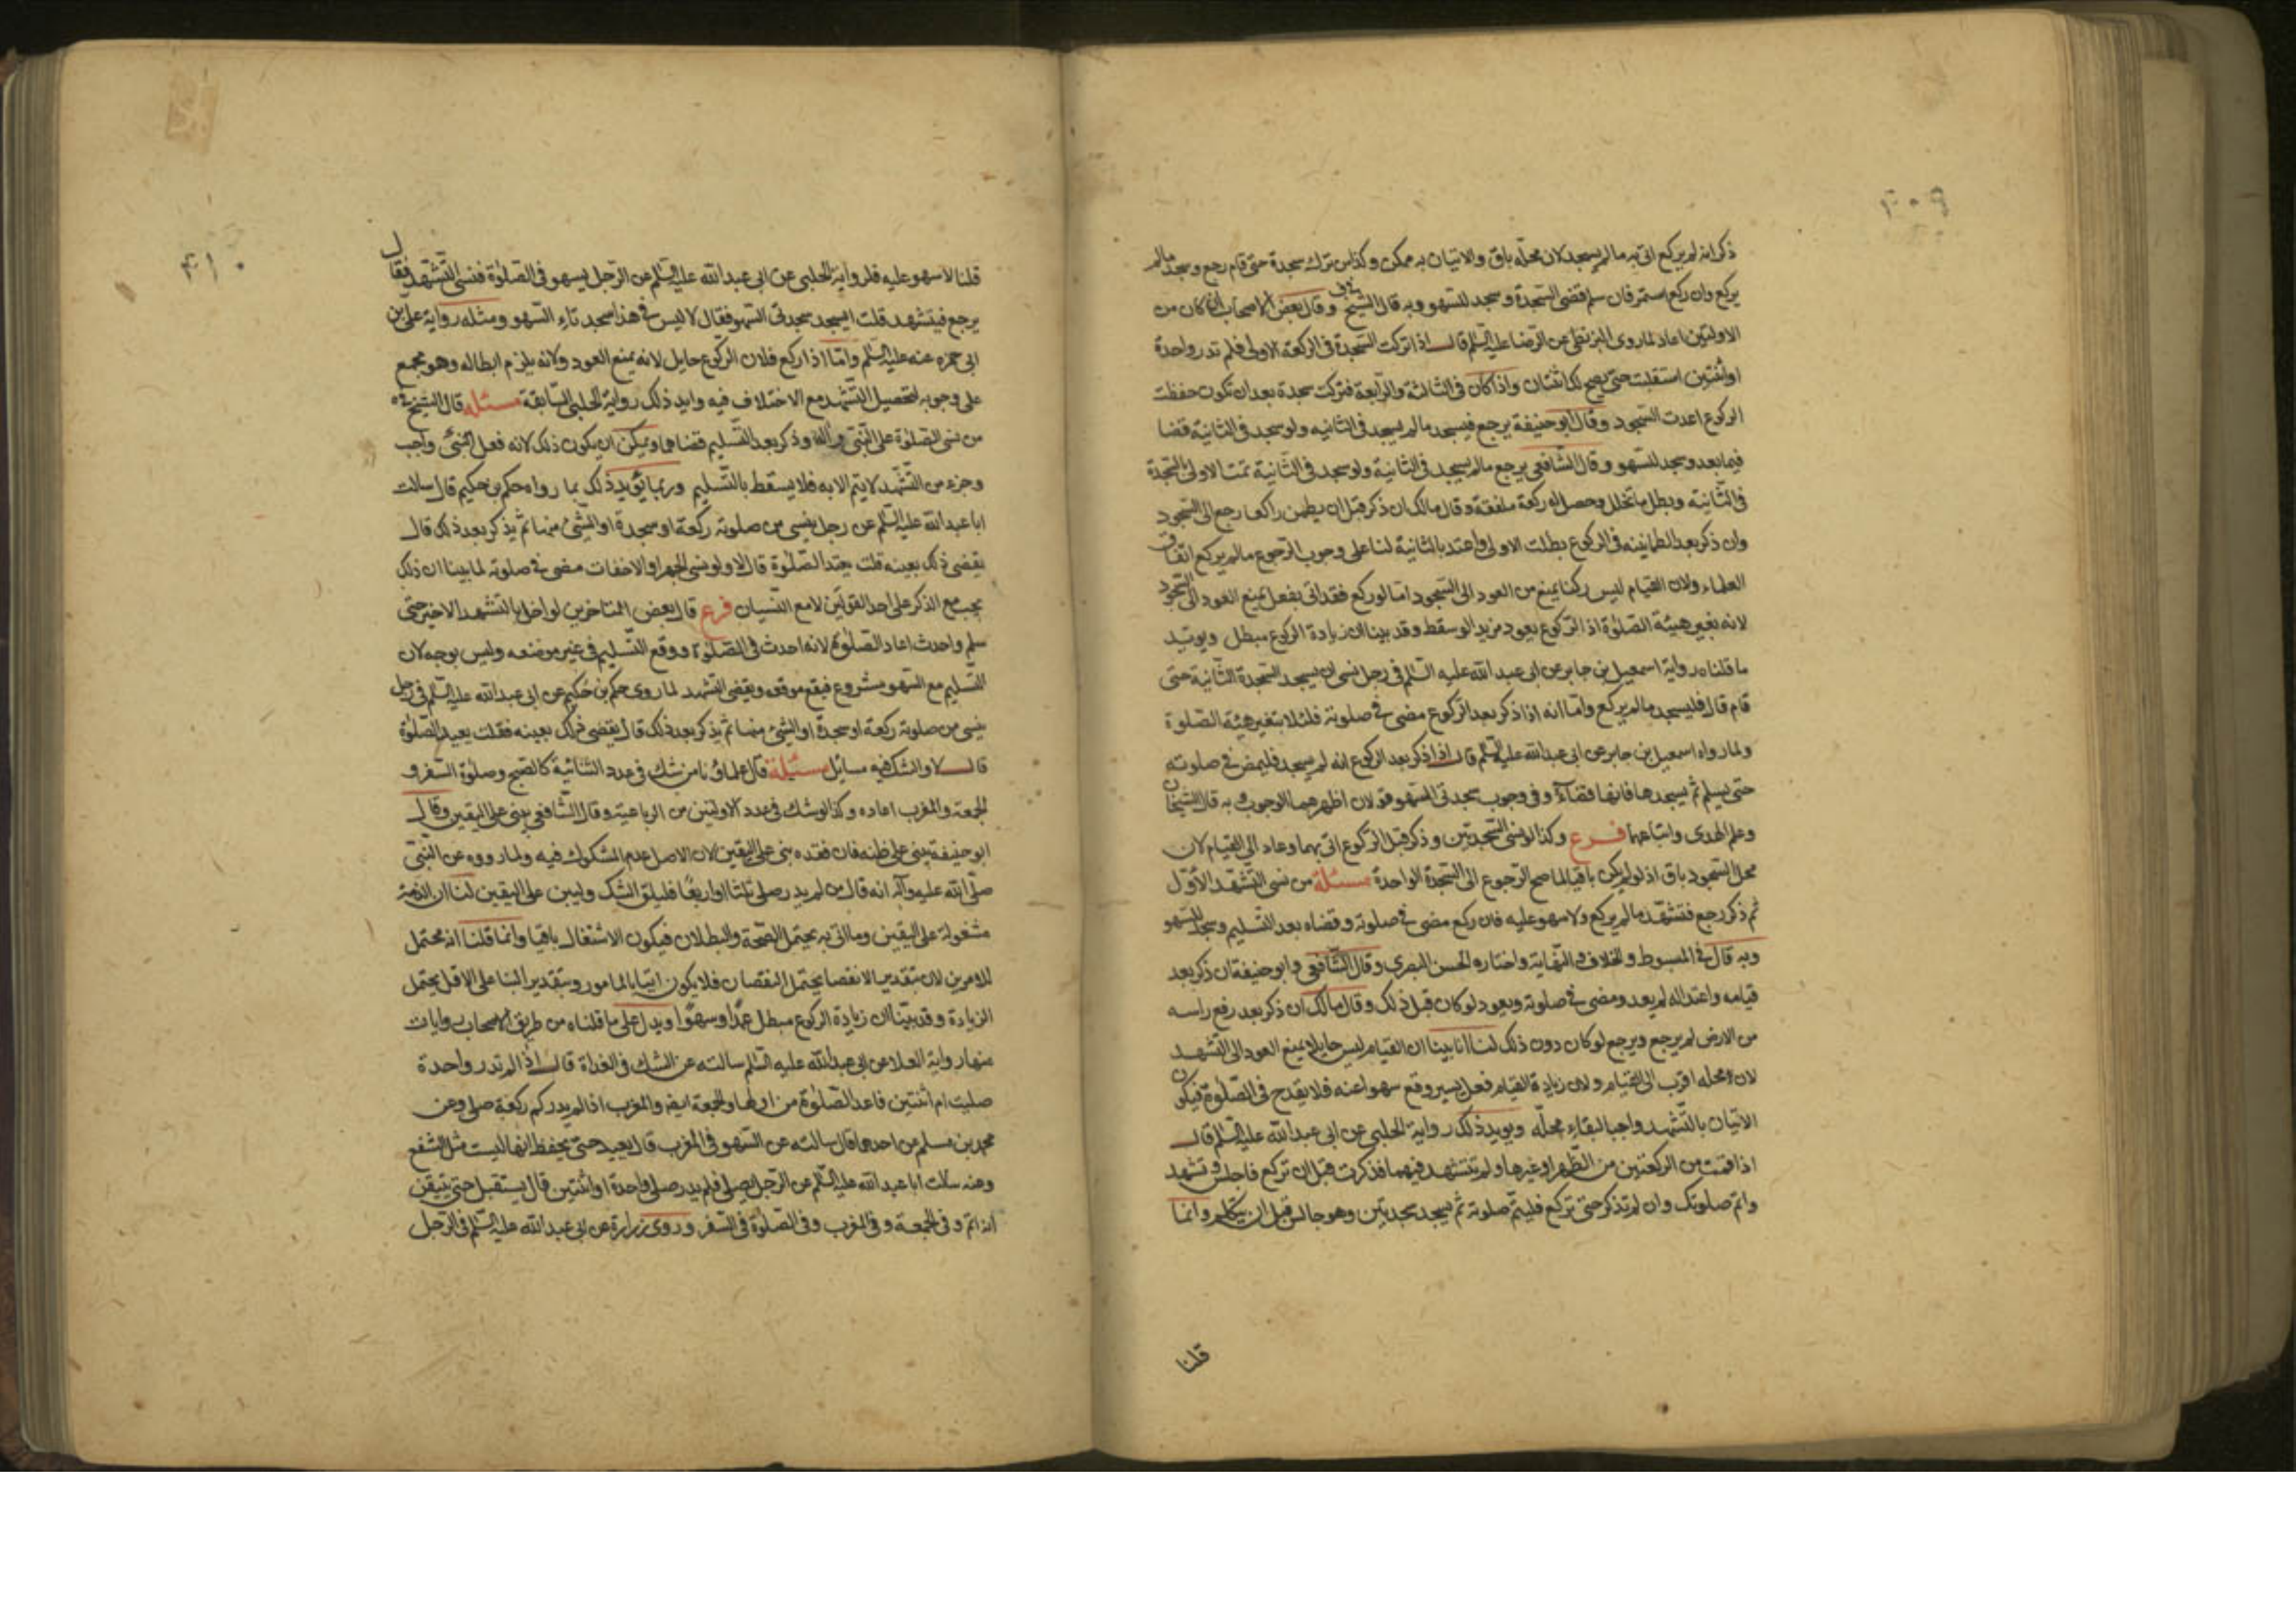 ٤٠٩
ذكر انه لم يركع اتى به ما لم يسجد لان محلّه باق والاتيان به ممكن وكذا من ترك سجدة حتى قام رجع وسجد ما لم
يركع وان ركع استمر فان سلم قضى السّجدة وسجد للسّهو وبه قال الشيخ وقال بعض الاصحاب ان كان من
الاولتين اعاد لما روى البزنطى عن الرضا عليه السّلم قال اذا تركت السّجدة فى الركعة الاولى فلم تدر واحدة
او ثنتين استقبلت حتى يصح لك اثنتان واذا كان فى الثالثة والرّابعة فتركت سجدة بعد ان تكون حفظت
الركوع اعدت السّجود وقال ابو حنيفة يرجع فيسجد ما لم يسجد فى الثانيه ولو سجد فى الثانية قضا
فيما بعد وسجد للسّهو وقال الشّافعى يرجع ما لم يسجد فى الثانية ولو سجد فى الثّانية تمت الاولى بالسّجدة
فى الثّانيه وبطل ما تخلل وحصل له ركعة ملفقة وقال مالك ان ذكر قبل ان يطمئن راكعا رجع الى السّجود
وان ذكر بعد الطمانينه فى الركوع بطلت الاولى واعتد بالثانية لنا على وجوب الرّجوع ما لم يركع اتفاق
العلماء ولان القيام ليس ركنا يمنع من العود الى السّجود امّا لو ركع فقد اتى بفعل يمنع العود الى السّجود
لانه تغير هيئة الصّلوة اذ الرّكوع يعود مزيدا لو سقط وقد بينا ان زيادة الركوع مبطل ويويّد
ما قلناه رواية اسمعيل بن جابر عن ابى عبد الله عليه السّلم فى رجل نسى ان يسجد السّجدة الثّانية حتى
قام قال فليسجد ما لم يركع وامّا انه اذا ذكر بعد الرّكوع مضى فى صلوته فلئلا يتغير هيئة الصّلوة
ولما رواه اسمعيل بن جابر عن ابى عبد الله عليه السّلم قال اذا ذكر بعد الركوع انه لم يسجد فليمض فى صلوته
حتى يسلم ثم يسجدها فانها قضآء وفى وجوب سجدتى السّهو قولان اظهرهما الوجوب وبه قال الشيخان
وعلم الهدى واتباعهما فرع وكذا لو نسى السّجدتين وذكر قبل الرّكوع اتى بهما وعاد الى القيام لان
محل السّجود باق اذ لو لم يكن باقيا لما صح الرّجوع الى السّجدة الواحدة مسئلة من نسى التّشهّد الاوّل
ثم ذكر رجع فتشهّد ما لم يركع ولا سهو عليه فان ركع مضى فى صلوته وقضاه بعد التّسليم وسجد للسّهو
وبه قال فى المبسوط والخلاف والنّهاية واختاره الحسن البصرى وقال الشّافعى وابو حنيفة ان ذكر بعد
قيامه واعتداله لم يعد ومضى فى صلوته ويعود لو كان قبل ذلك وقال مالك ان ذكر بعد رفع راسه
من الارض لم يرجع ويرجع لو كان دون ذلك لنا انا بينا ان القيام ليس حايلا يمنع العود الى التشهد
لان محله اقرب الى القيام ولان زيادة القيام فعل يسير وقع سهوا عنه فلا يقدح فى الصّلوة فيكون
الاتيان بالتّشهد واجبا لبقاء محلّه ويويد ذلك رواية الحلبى عن ابى عبد الله عليه السّلم قال
اذا قمت من الركعتين من الظّهر او غيرها ولم تتشهد فيهما فذكرت قبل ان تركع فاجلس وتشهد
واتم صلوتك وان لم تذكر حتى تركع فليتمّ صلوته ثم يسجد سجدتين وهو جالس قبل ان يتكلم وانما
قلنا
٤١٠
قلنا لا سهو عليه فلرواية الحلبى عن ابى عبد الله عليه السّلم عن الرّجل يسهو فى الصّلوة فنسى التّشهّد فقال
يرجع فيتشهد قلت ايسجد سجدتى السّهو فقال لا ليس فى هذا سجدتاء السّهو ومثله رواية على بن
ابى حمزه عنه عليه السّلم وامّا اذا ركع فلان الركوع حايل لانه يمنع العود ولانه يلزم ابطاله وهو مجمع
على وجوبه لتحصيل التّشهد مع الاختلاف فيه وايد ذلك رواية الحلبى السّابقة مسئله قال الشيخ ره
من نسى الصّلوة على النّبى وآله وذكر بعد التّسليم قضاهما ويمكن ان يكون ذلك لانه فعل شىء واجب
وجزء من التّشهّد لا يتم الا به فلا يسقط بالتّسليم وربما يؤيد ذلك بما رواه حكم بن حكيم قال سالت
ابا عبد الله عليه السّلم عن رجل ينسى من صلوته ركعة او سجدة او الشّىء منها ثم يذكر بعد ذلك قال
يقضى ذلك بعينه قلت يعتد الصّلوة قال لا ولو نسى الجهر او الاخفات مضى فى صلوته لما بينا ان ذلك
يجب مع الذكر على احد القولين لا مع النّسيان فرع قال بعض المتاخرين لو اخل بالتشهد الاخير حتى
سلم واحدث اعاد الصّلوة لانه احدث فى الصّلوة ووقع التّسليم فى غير موضعه وليس بوجه لان
التّسليم مع السّهو مشروع فيقع موقعه ويقضى التّشهد لما روى حكم بن حكيم عن ابى عبد الله عليه السّلم فى رجل
ينسى من صلوته ركعة او سجدة او الشىء منها ثم يذكر بعد ذلك قال يقضى ذلك بعينه فقلت يعيد الصّلوة
قال لا والشك فيه مسائل مسئيلة قال علماؤنا من شك فى عدد الثنائية كالصّبح وصلوة السّفر و
الجمعة والمغرب اعاده وكذا لو شك فى عدد الاولتين من الرباعية وقال الشّافعى يبنى على اليقين وقال
ابو حنيفة يبنى على ظنه فان فقده بنى على اليقين لان الاصل عدم المشكوك فيه ولما رووه عن النّبى
صلّى الله عليه وآله انه قال من لم يدر صلى ثلثا او اربعًا فليلق الشك وليبن على اليقين لنا ان الذمة
مشغولة على اليقين وما اتى به يحتمل الصّحة والبطلان فيكون الاشتغال باقيا وانما قلنا انه محتمل
للامرين لان بتقدير الانفصا يحتمل النقصان فلا يكون اتيا بالمامور وبتقدير البنا على الاقل يحتمل
الزيادة وقد بيّنا ان زيادة الركوع مبطل عمدًا وسهوًا ويدل على ما قلناه من طريق الاصحاب روايات
منها رواية العلا عن ابى عبد الله عليه السّلم سالته عن الشك فى الغداة قال اذا لم تدر واحدة
صليت ام اثنتين فاعد الصّلوة من اولها والجمعة ايضه والمغرب اذا لم يدر كم ركعة صلى وعن
محمد بن مسلم عن احدهما قال سالته عن السّهو فى المغرب قال يعيد حتى يحفظ انها ليست مثل الشفع
وعنه سالت ابا عبد الله عليه السّلم عن الرّجل يصلى فلم يدر صلى واحدة او اثنتين قال يستقبل حتى يتيقن
انه اتم وفى الجمعة وفى المغرب وفى الصّلوة فى السّفر وروى زرارة عن ابى عبد الله عليه السّلم فى الرّجل